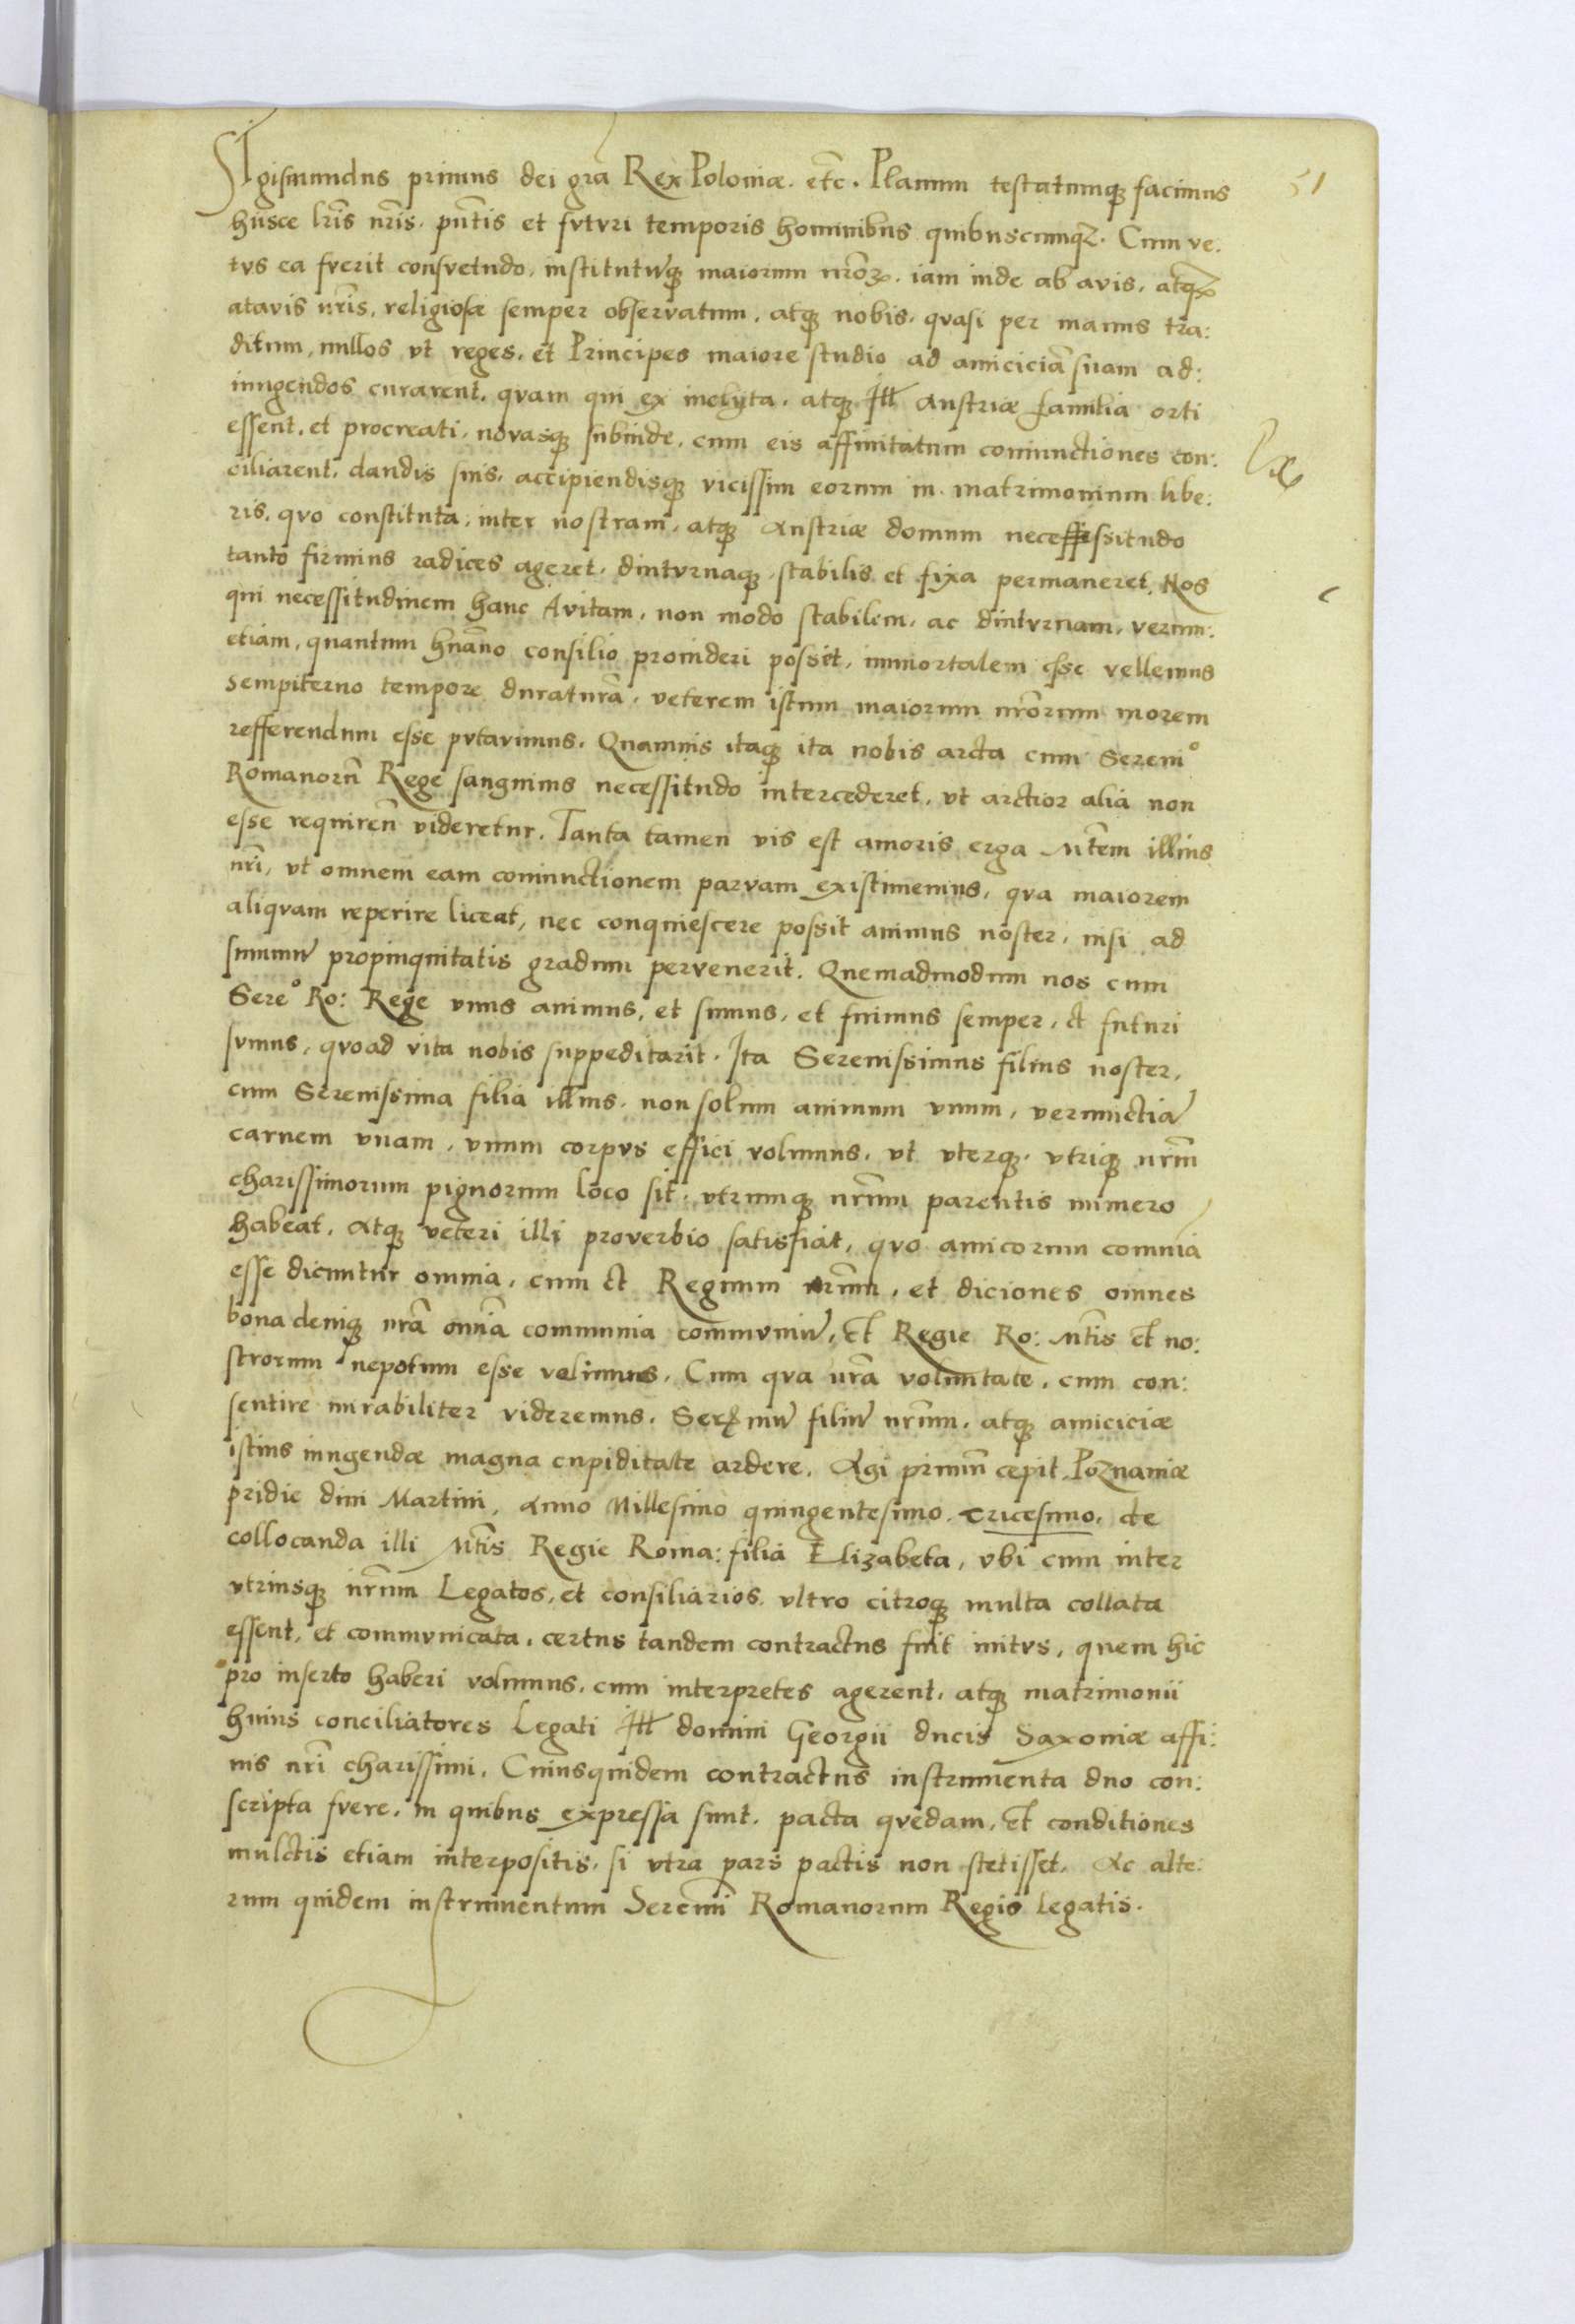 SIgismundus primus dei gra͞ Rex Poloniæ. etc͞. Planum testatumq; facimus
husce lr͞is nr͞is. pnt͞is et futuri temporis hominibus quibuscumq;. Cum ve:
tus ea fuerit consuetudo, institutu͞q; maiorum nr͞oꝝ. iam inde ab avis, atq;
atavis nr͞is, religiosæ semper observatum, atq; nobis. quasi per manus tra:
ditum, nullos ut reges, et Principes maiore studio ad amicicia͞ suam ad:
iungendos curarent, quam qui ex inclyta. atq; Ill Austriæ familia orti
essent, et procreati, novasq; subinde, cum eis affinitatum coniunctiones con:
ciliarent, dandis suis, accipiendisq; vicissim eorum in matrimonium libe:
ris, quo constituta, inter nostram, atq; Austriæ domum necessitudo
tanto firmius radices ageret, diuturnaq; stabilis et fixa permaneret, Nos
qui necessitudinem hanc Avitam, non modo stabilem, ac diuturnam, verum:
etiam, quantum hua͞no consilio provideri possit, immortalem esse vellemus
sempiterno tempore duratura͞, veterem istum maiorum nr͞orum morem
refferendum esse putavimus. Quamvis itaq; ita nobis arcta cum Sereni°
Romanoru͞ Rege sanguinis necessitudo intercederet, ut arctior alia non
esse requiren͞ videretur. Tanta tamen vis est amoris erga Mt͞em illius
nr͞i, ut omnem eam coniunctionem parvam existimemus, qua maiorem
aliquam reperire liceat, nec conquiescere possit animus noster, nisi ad
summu͞ propinquitatis gradum pervenerit. Quemadmodum nos cum
Sere° Ro: Rege unus animus, et sumus, et fuimus semper, et futuri
sumus, quoad vita nobis suppeditarit. Ita Serenissimus filius noster,
cum Serenissima filia illius. non solum animum unum, verumetia͞
carnem unam, unum corpus effici volumus, ut uterq;, utriq; nr͞m
charissimorum pignorum loco sit, utrumq; nr͞um parentis numero
habeat, Atq; veteri illi proverbio satisfiat, quo amicorum comunia
esse dicuntur omnia, cum et Regnum nr͞um, et diciones omnes
bona deniq; nr͞a omn͞ia communia communiu͞, et Regie Ro: Mt͞is et no:
strorum nepotum esse volumus. Cum qua nr͞a voluntate, cum con:
sentire mirabiliter videremus, Sere͞mu͞ filiu͞ nr͞um, atq; amiciciæ
istius iungendæ magna cupiditate ardere, Agi primu͞ cepit Poznaniæ
pridie divi Martini, Anno Millesimo quingentesimo. tricesimo, de
collocanda illi Mt͞is Regie Roma: filia Elizabeta, ubi cum inter
utriusq; nr͞um Legatos, et consiliarios ultro citroq; multa collata
essent, et communicata, certus tandem contractus fuit initus, quem hic
pro inserto haberi volumus, cum interpretes agerent, atq; matrimonii
huius conciliatores Legati Ill domini Georgii ducis Saxoniæ affi:
nis nr͞i charissimi, Cuiusquidem contractus instrumenta duo con:
scripta fuere, in quibus expressa sunt. pacta quedam, et conditiones
mulctis etiam interpositis, si utra pars pactis non stetisset. Ac alte:
rum quidem instrumentum Sere͞mi Romanorum Regis legatis.